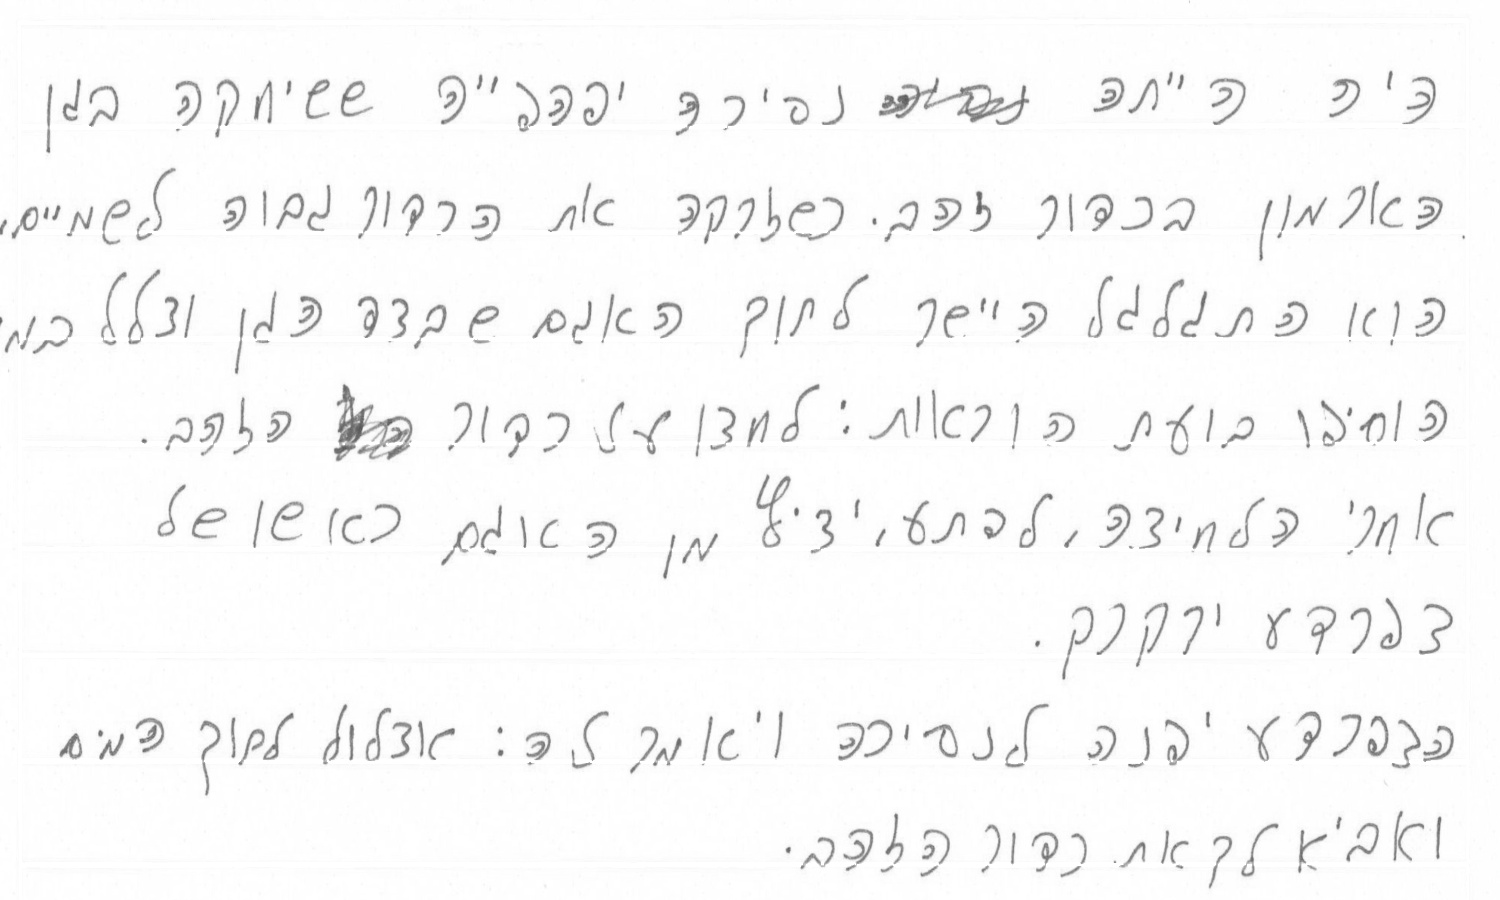 היה הייתה נסיכה יפהפייה ששיחקה בגן
הארמון בכדור זהב. כשזרקה את הכדור גבוה לגשמיים,
הוא התגלגל היישר לתוך האגם שבצד הגן וצלל במי
הוחיפו בועת הוראות: לחצו על כדור הזהב.
אחרי הלחיצה, לפתע, יציץ מן האוגם ראשו של
צפרדע ירקרק.
הצפרדע יפנה לנסיכה ויאמר לה: אצלול לתוך המים
ואביא לך את כדור הזהב.